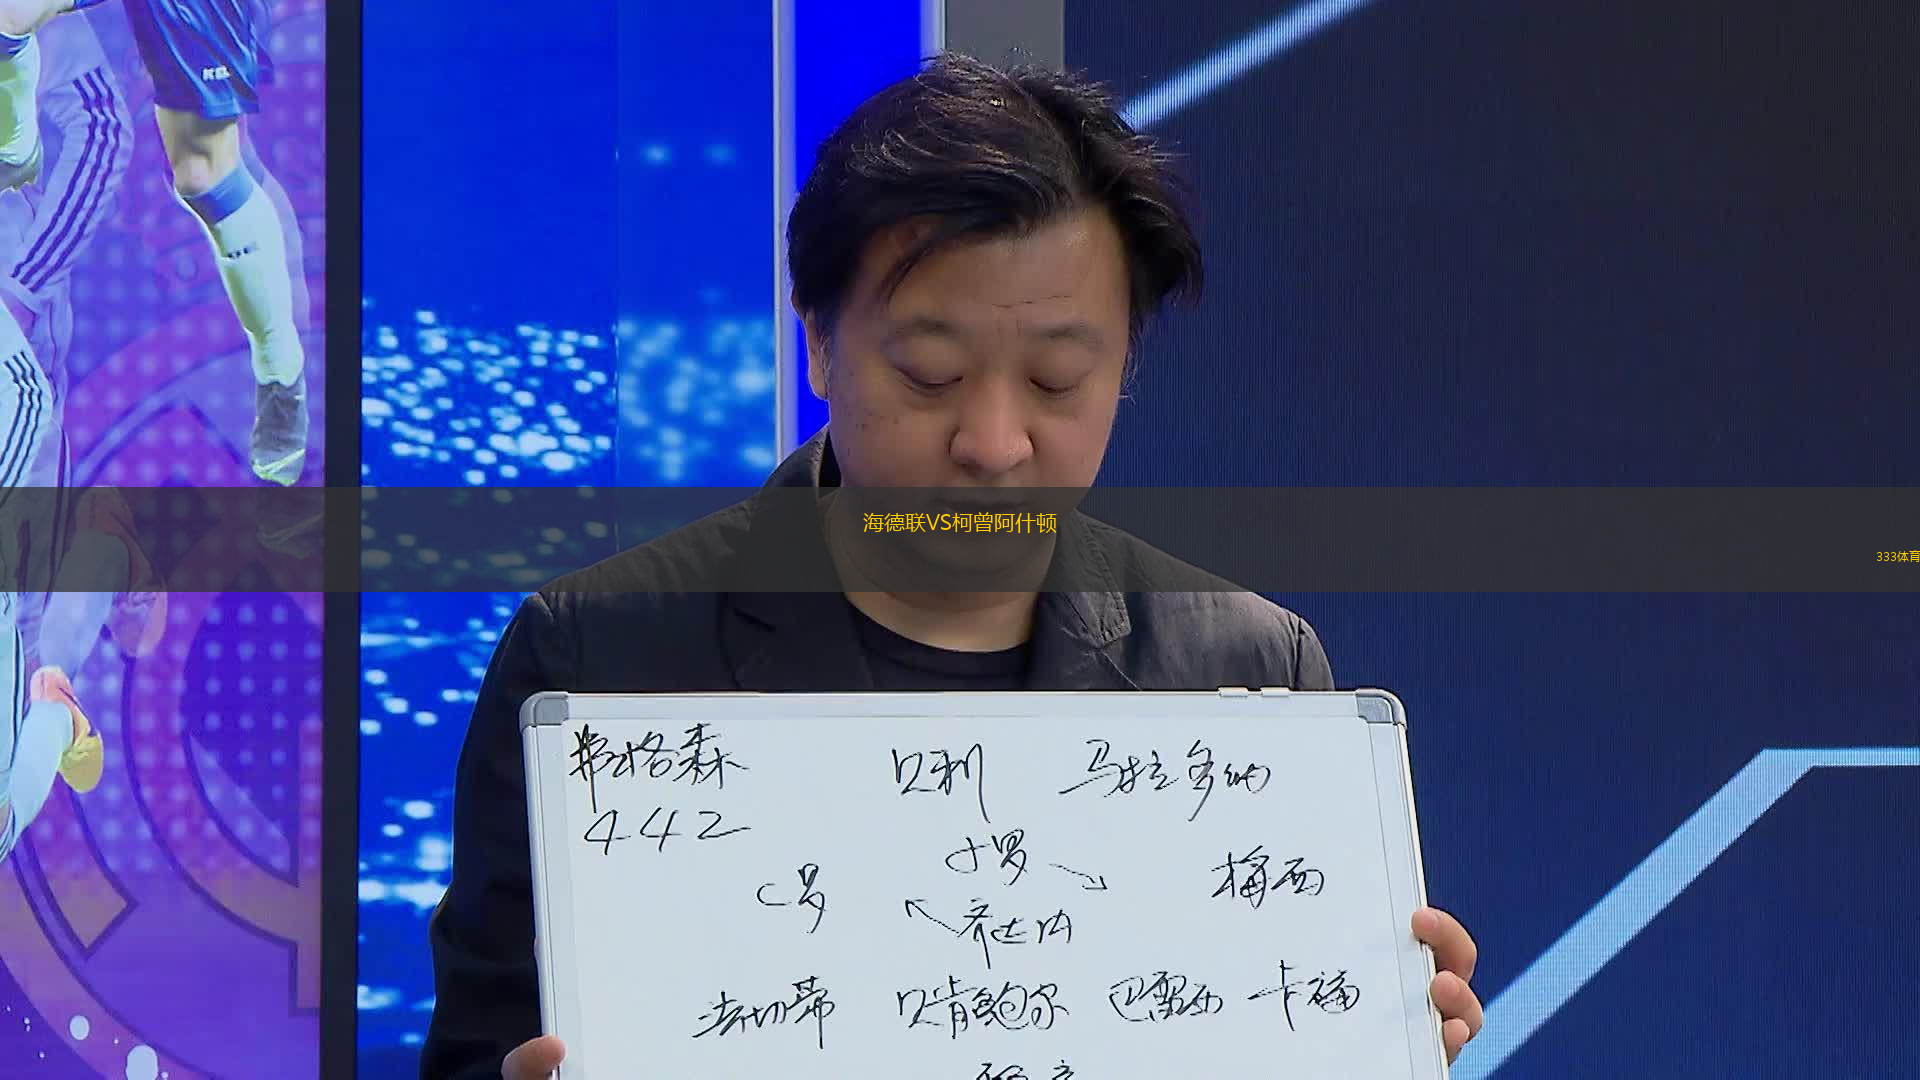 海德联VS柯曾阿什顿
333体育
弗格森 贝利 马拉多纳
442
小罗
C罗 梅西
齐达内
法切蒂 贝肯鲍尔 巴雷西 卡福